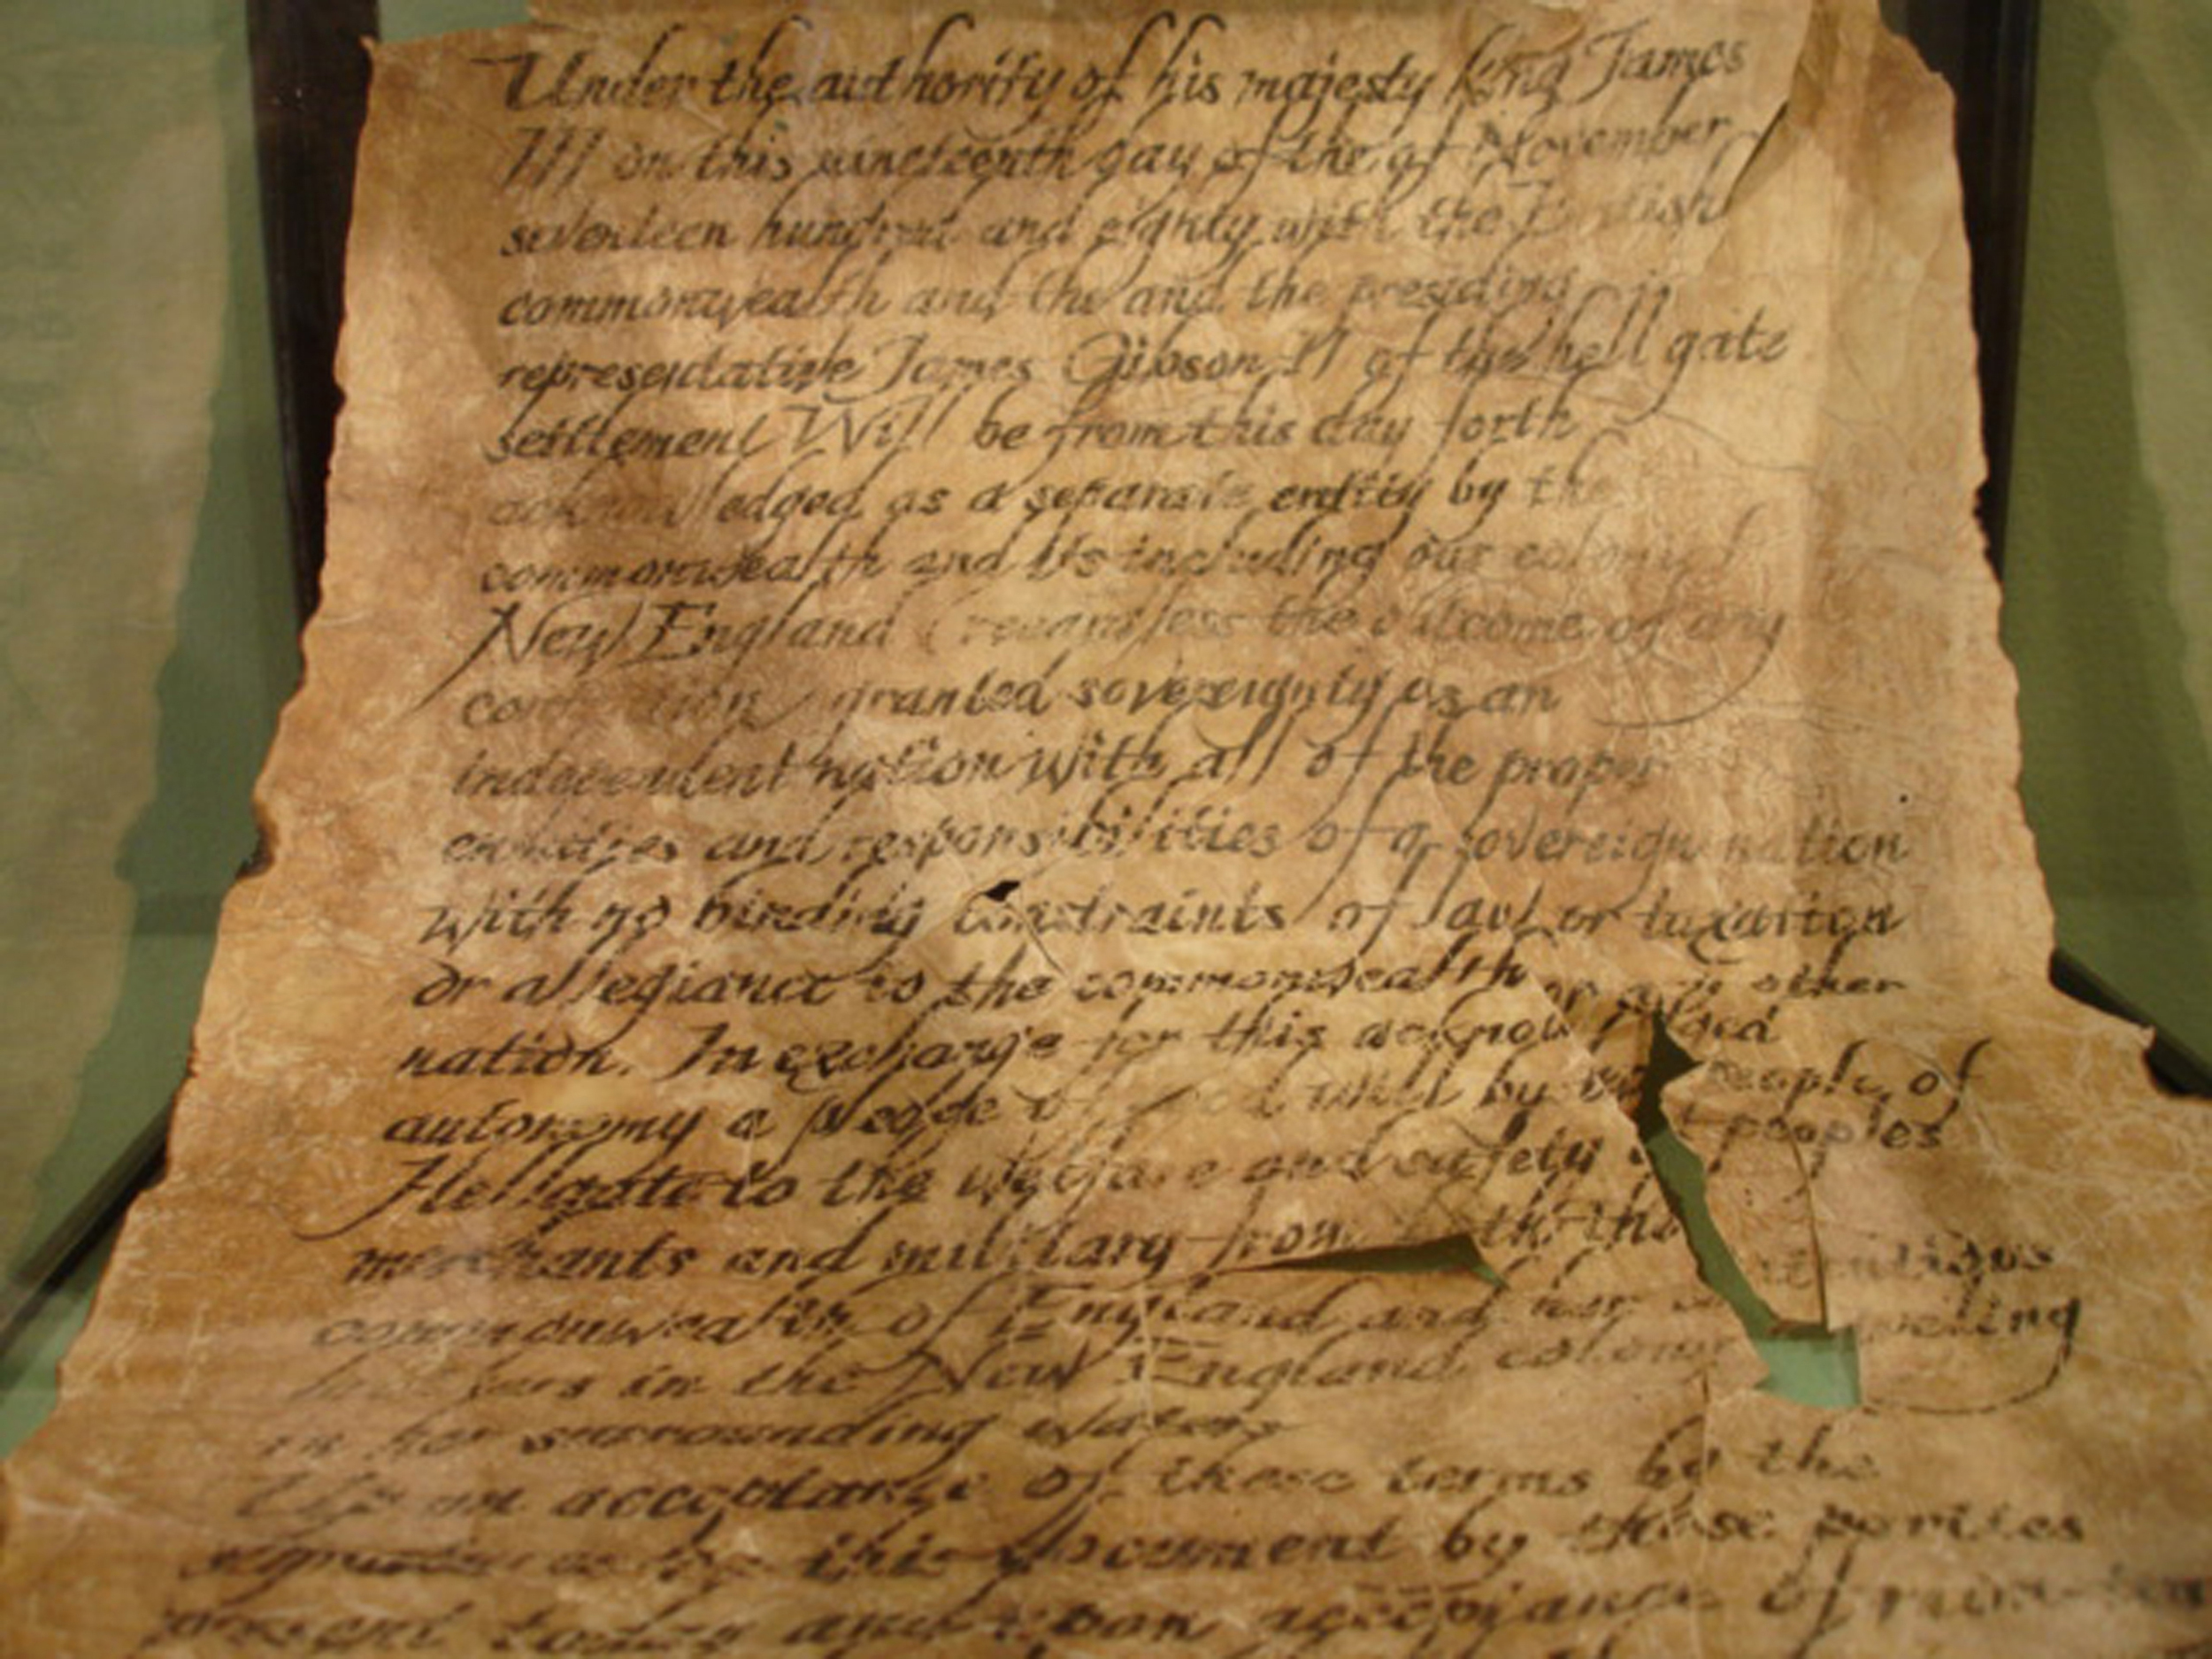 Under the authority of his majesty king James
III on this nineteenth day of the of November
seventeen hundred and eighty with the
commonwealth and the and the presiding
representative James Gibson II of the hell gate
settlement Will be from this day forth
edged as a separate entity by the
commonwealth and its including our colony of
New England ( regardless the outcome of any
granted sovereignty as an
independent nation with all of the proper
and responsibilities of a sovereign nation
with no binding constraints of law or taxation
or allegiance to the commonwealth or any other
nation. In exchange for this acknow ged
autonomy a pledge of good will by the people of
Hellgate to the welfare and safety peoples
merchants and military from the
commonwealth of England and her
in the New England colony
in her surrounding waters
Upon acceptance of these terms by the
this document by those parties
present today and upon acceptance of